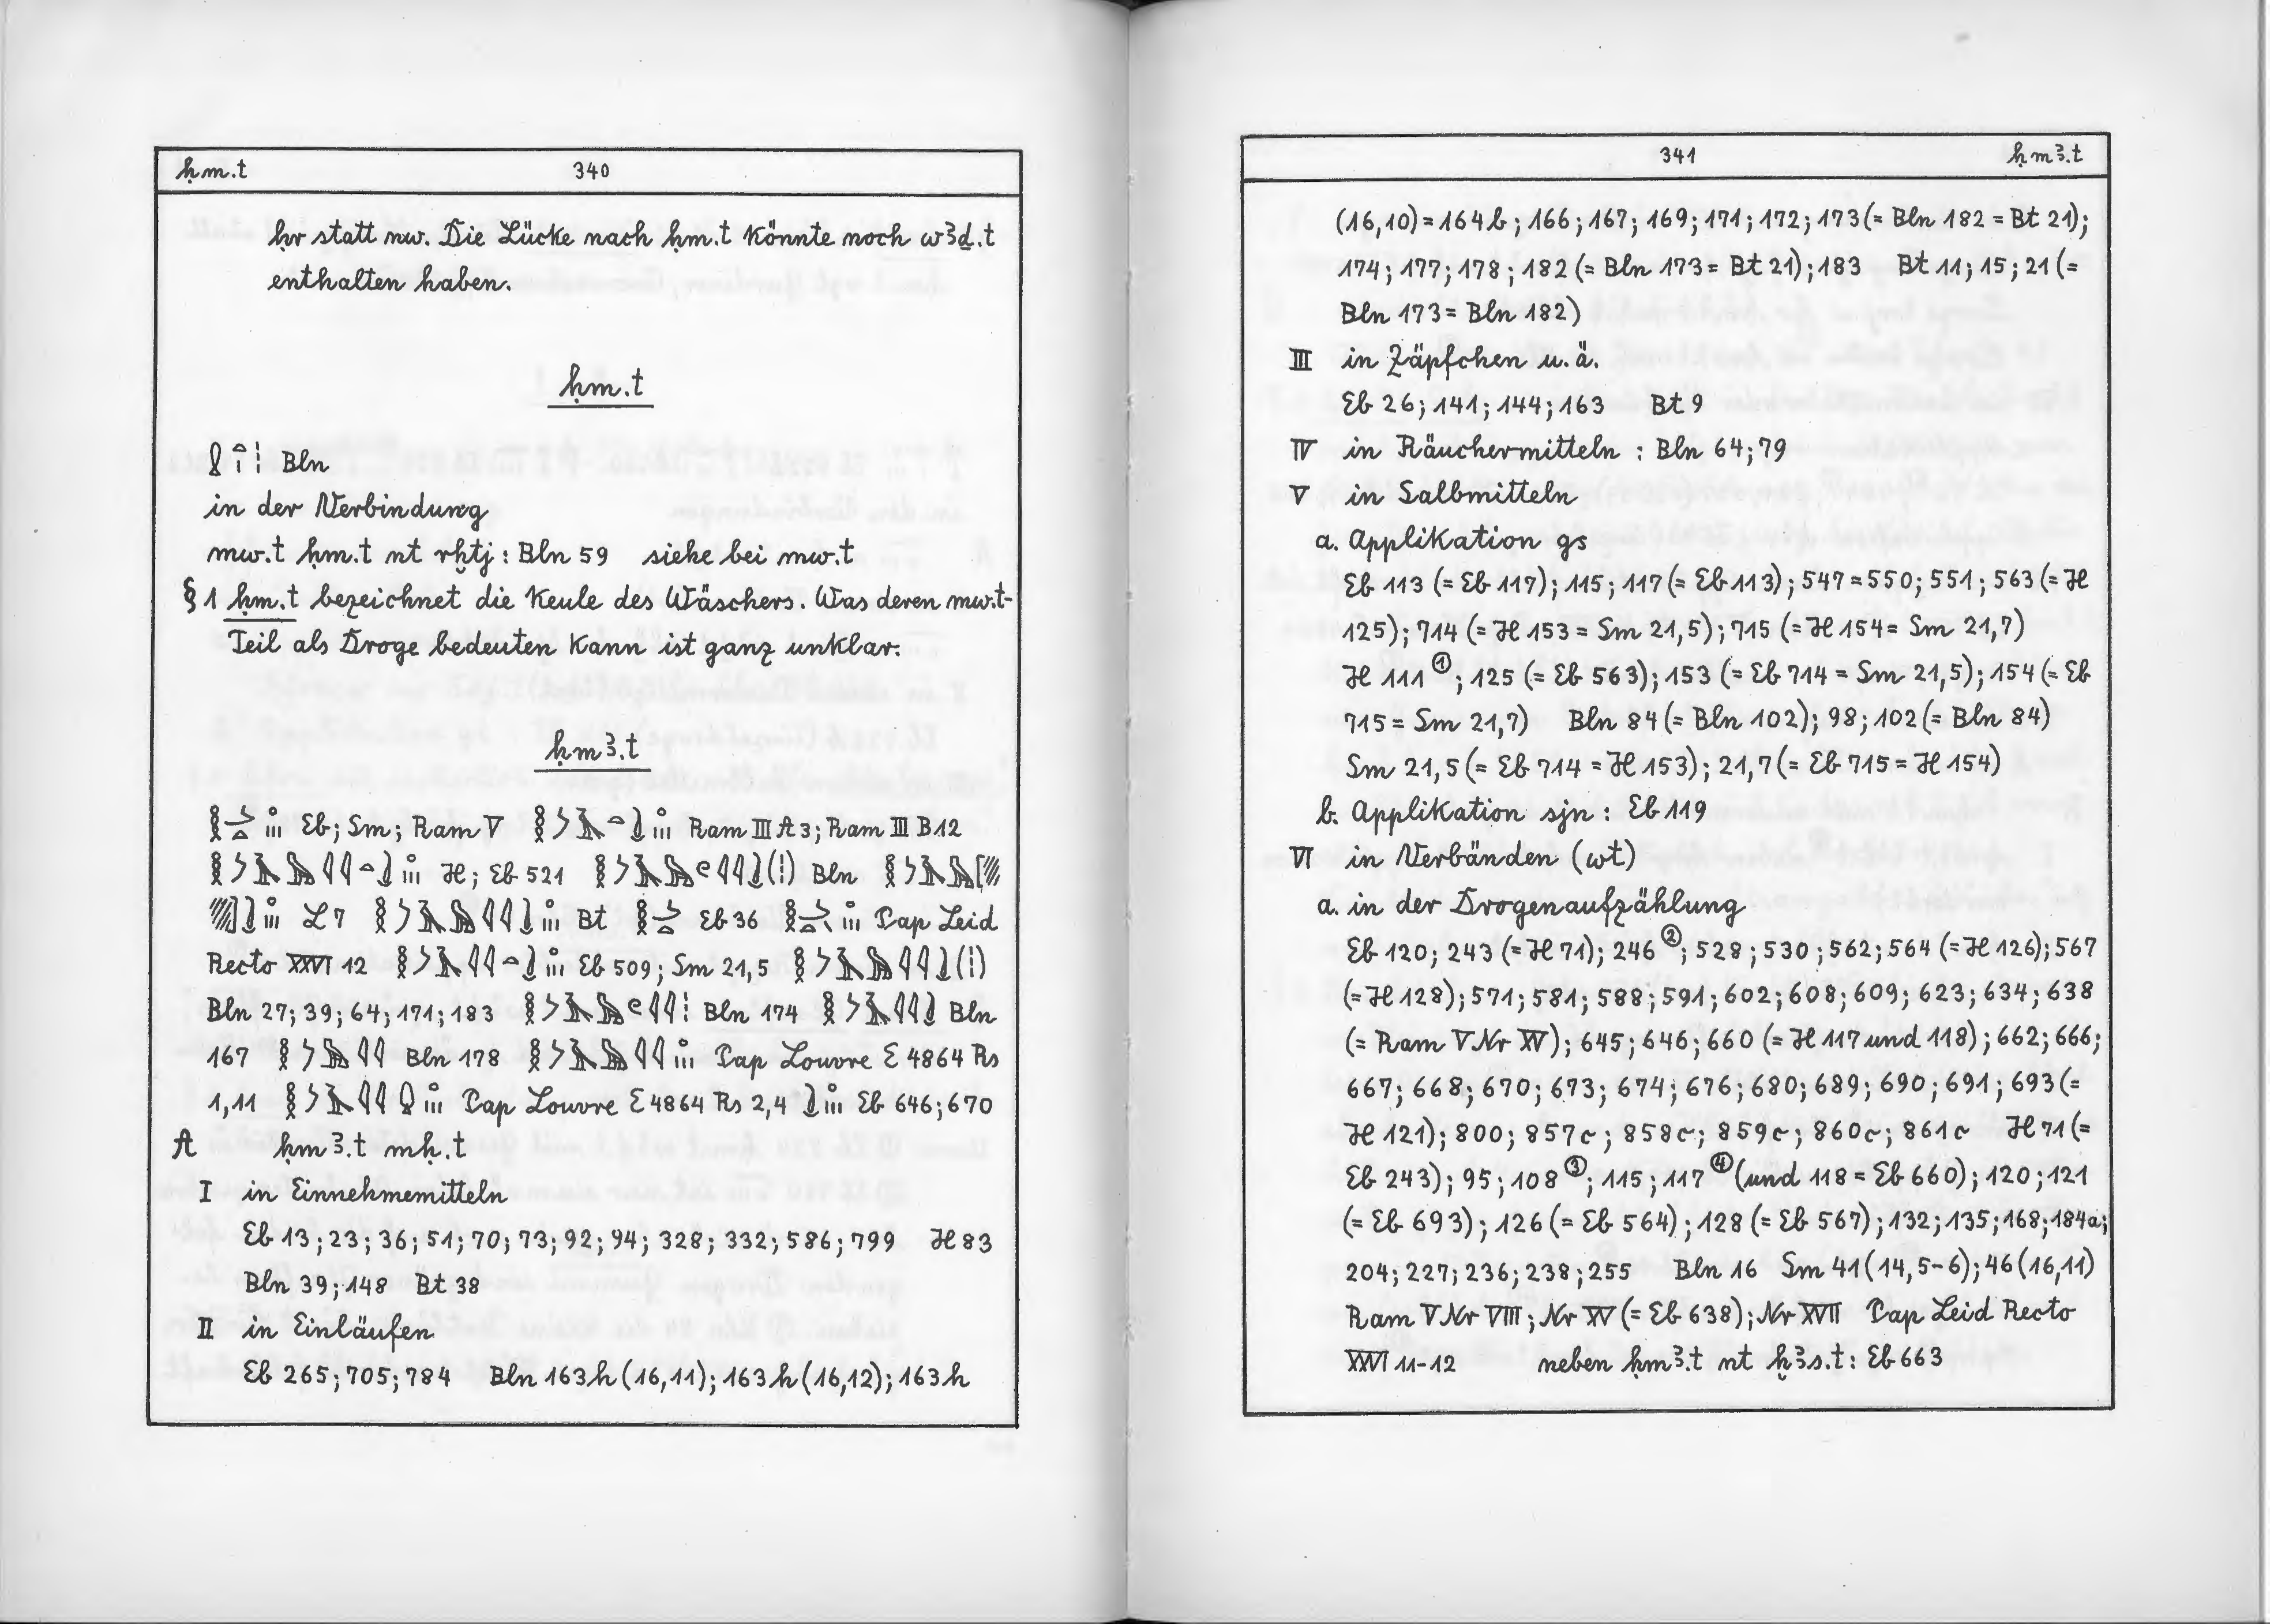 ḥm.t 340
ḥr statt nw. Die Lücke nach ḥm.t könnte noch wꜣḏ.t
enthalten haben.
ḥm.t
Bln
in der Verbindung
mw.t ḥm.t nt rḫtj : Bln 59 siehe bei mw.t
§ 1 ḥm.t bezeichnet die Keule des Wäschers. Was deren mw.t-
Teil als Droge bedeuten kann ist ganz unklar.
ḥmꜣ.t
Eb; Sm; Ram V Ram III A 3; Ram III B 12
H; Eb 521 Bln
L 7 Bt Eb 36 Pap Leid
Recto XXVI 12 Eb 509; Sm 21,5
Bln 27; 39; 64; 171; 183 Bln 174 Bln
167 Bln 178 Pap Louvre E 4864 Rs
1,11 Pap Louvre E 4864 Rs 2,4 Eb 646; 670
A ḥmꜣ.t mḥ.t
I in Einnehmemitteln
Eb 13; 23; 36; 51; 70; 73; 92; 94; 328; 332; 586; 799 H 83
Bln 39; 148 Bt 38
II in Einläufen
Eb 265; 705; 784 Bln 163h (16,11); 163h (16,12); 163h
341 ḥmꜣ.t
(16,10) = 164b; 166; 167; 169; 171; 172; 173 (= Bln 182 = Bt 21);
174; 177; 178; 182 (= Bln 173 = Bt 21); 183 Bt 11; 15; 21 (=
Bln 173 = Bln 182)
III in Zäpfchen u. ä.
Eb 26; 141; 144; 163 Bt 9
IV in Räuchermitteln : Bln 64; 79
V in Salbmitteln
a. Applikation gs
Eb 113 (= Eb 117); 115; 117 (= Eb 113); 547 = 550; 551; 563 (= H
125); 714 (= H 153 = Sm 21,5); 715 (= H 154 = Sm 21,7)
H 111 ①; 125 (= Eb 563); 153 (= Eb 714 = Sm 21,5); 154 (= Eb
715 = Sm 21,7) Bln 84 (= Bln 102); 98; 102 (= Bln 84)
Sm 21,5 (= Eb 714 = H 153); 21,7 (= Eb 715 = H 154)
b. Applikation sjn : Eb 119
VI in Verbänden (wt)
a. in der Drogenaufzählung
Eb 120; 243 (= H 71); 246 ②; 528; 530; 562; 564 (= H 126); 567
(= H 128); 571; 581; 588; 591; 602; 608; 609; 623; 634; 638
(= Ram V Nr XV); 645; 646; 660 (= H 117 und 118); 662; 666;
667; 668; 670; 673; 674; 676; 680; 689; 690; 691; 693 (=
H 121); 800; 857c; 858c; 859c; 860c; 861c H 71 (=
Eb 243); 95; 108 ③; 115; 117 ④ (und 118 = Eb 660); 120; 121
(= Eb 693); 126 (= Eb 564); 128 (= Eb 567); 132; 135; 168; 184a;
204; 227; 236; 238; 255 Bln 16 Sm 41 (14,5-6); 46 (16,11)
Ram V Nr VIII; Nr XV (= Eb 638); Nr XVII Pap Leid Recto
XXVI 11-12 neben ḥmꜣ.t nt ḫꜣs.t : Eb 663